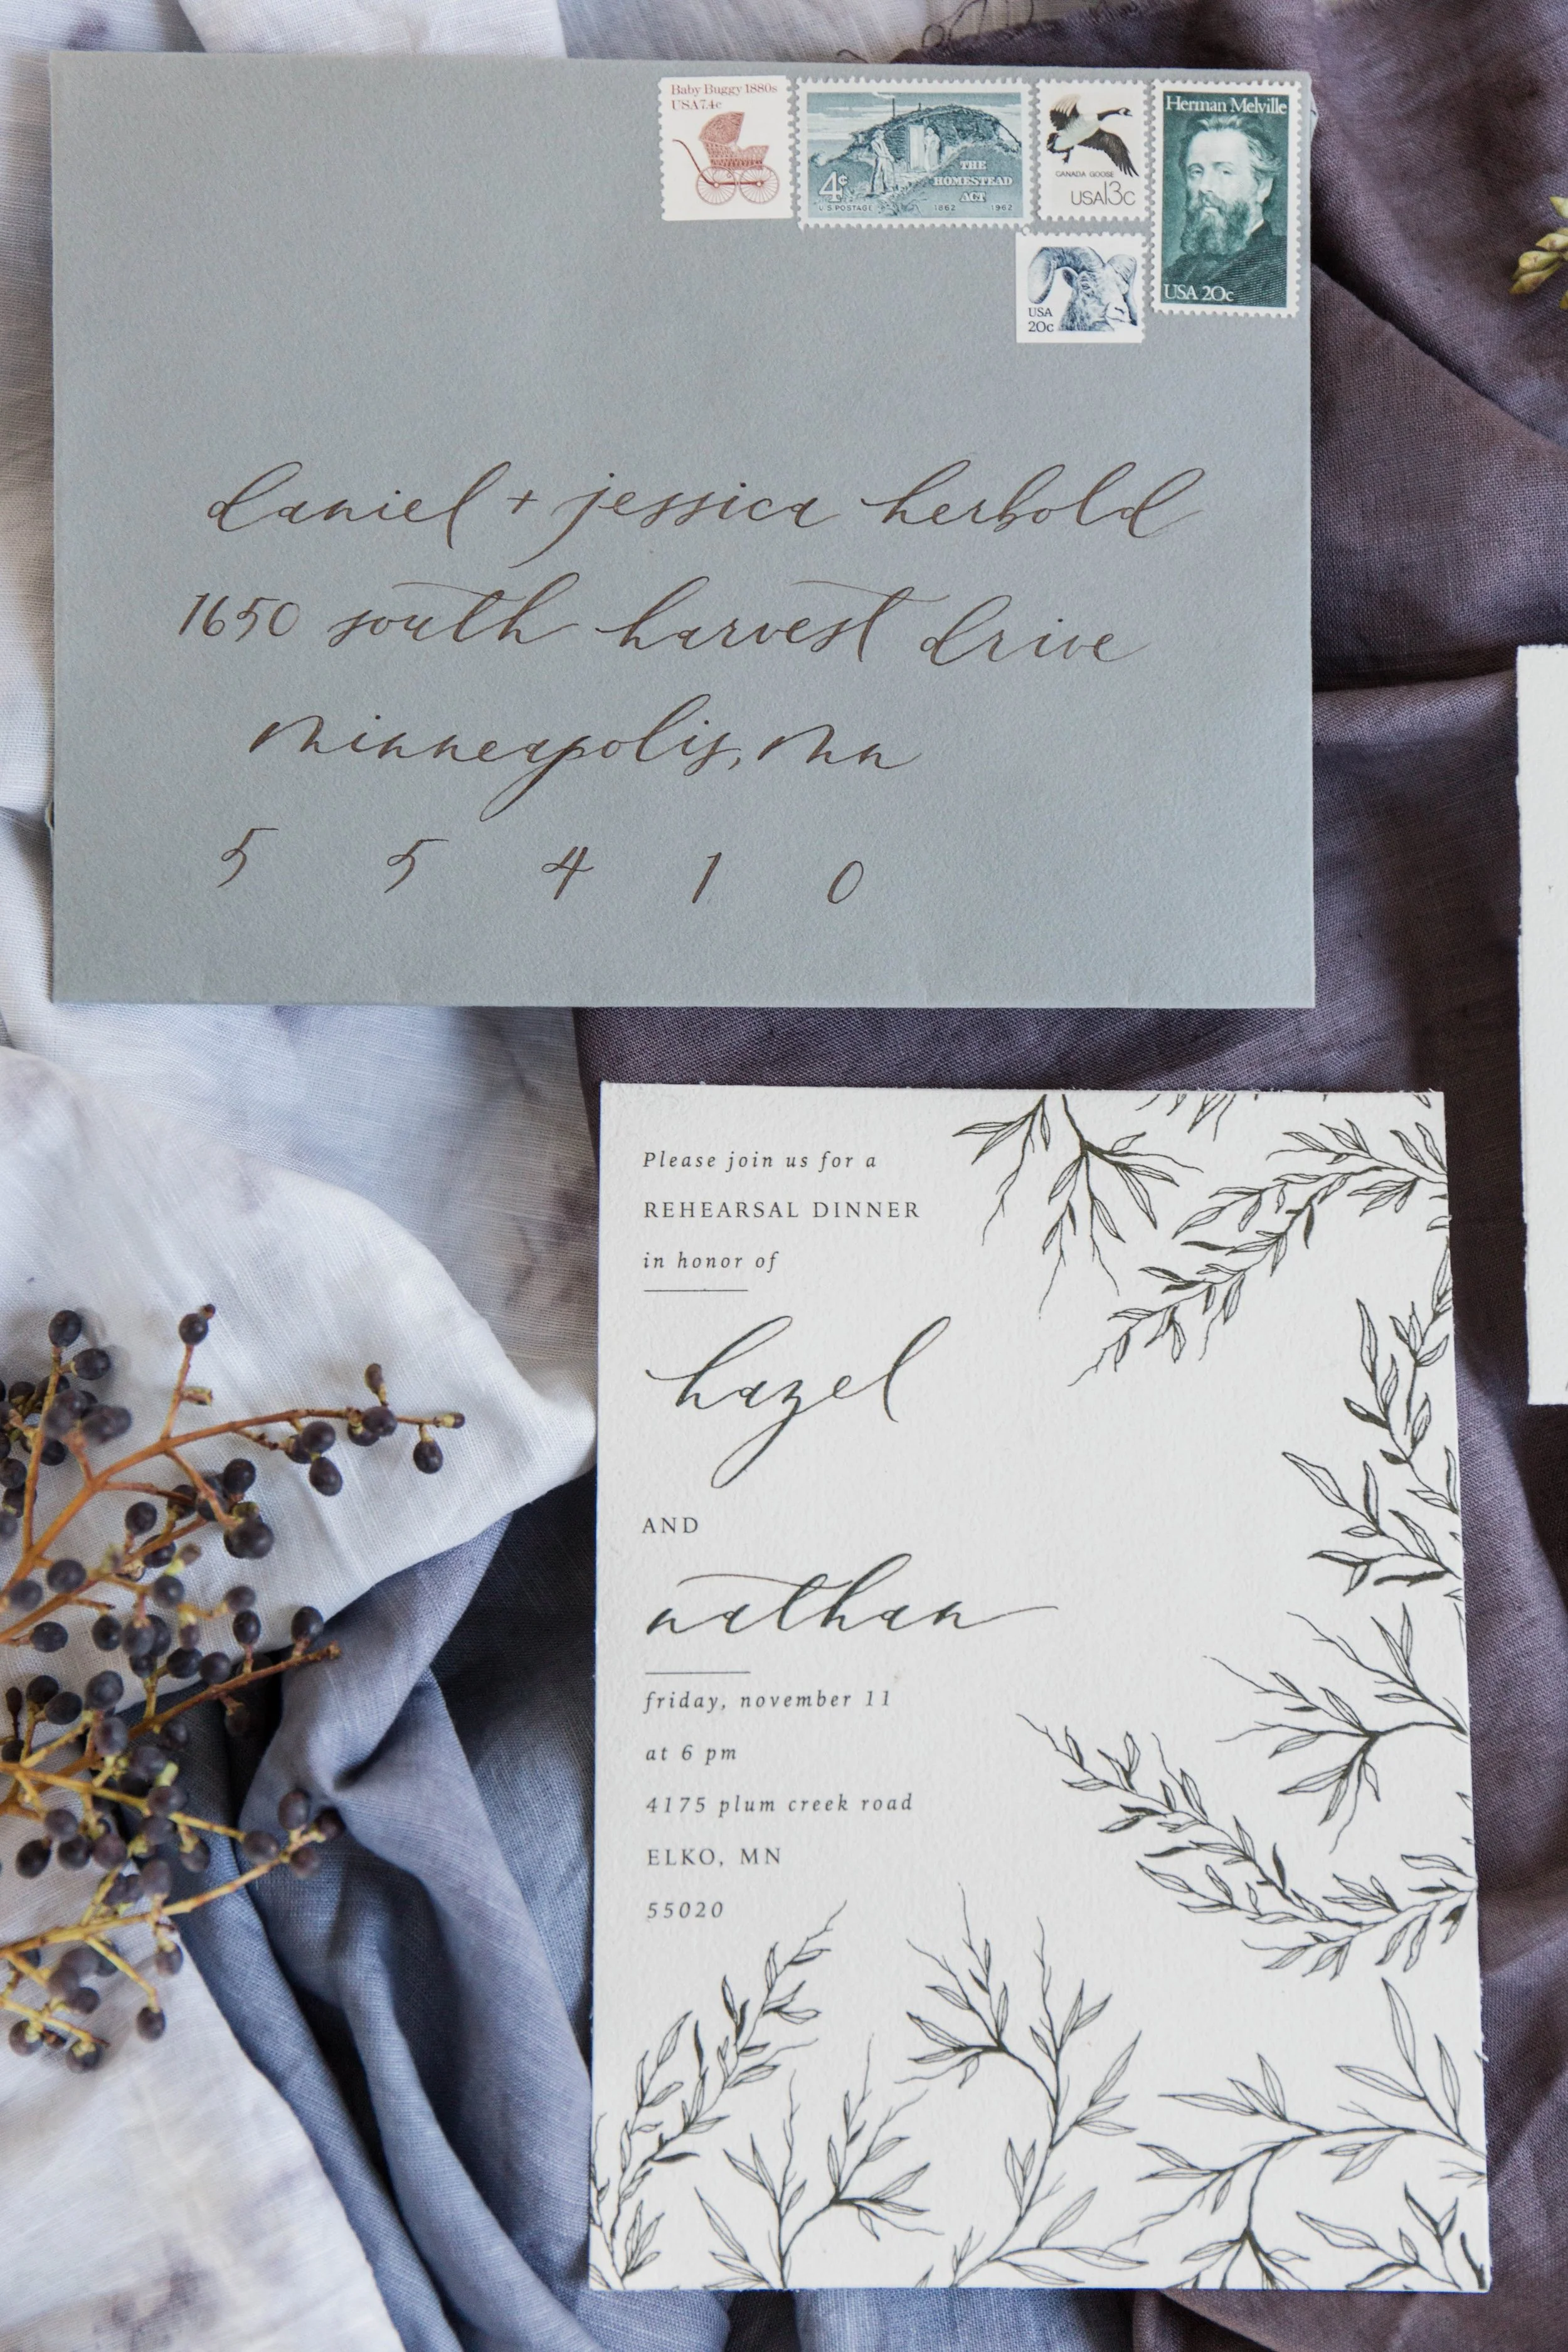 Baby Buggy 1880s
USA 7.4c
4¢
U.S. POSTAGE
THE
HOMESTEAD
ACT
1862 1962
CANADA GOOSE
USA13c
Herman Melville
USA 20c
USA
20c
daniel + jessica herbold
1650 south harvest drive
minneapolis, mn
5 5 4 1 0
Please join us for a
REHEARSAL DINNER
in honor of
hazel
AND
nathan
friday, november 11
at 6 pm
4175 plum creek road
ELKO, MN
55020